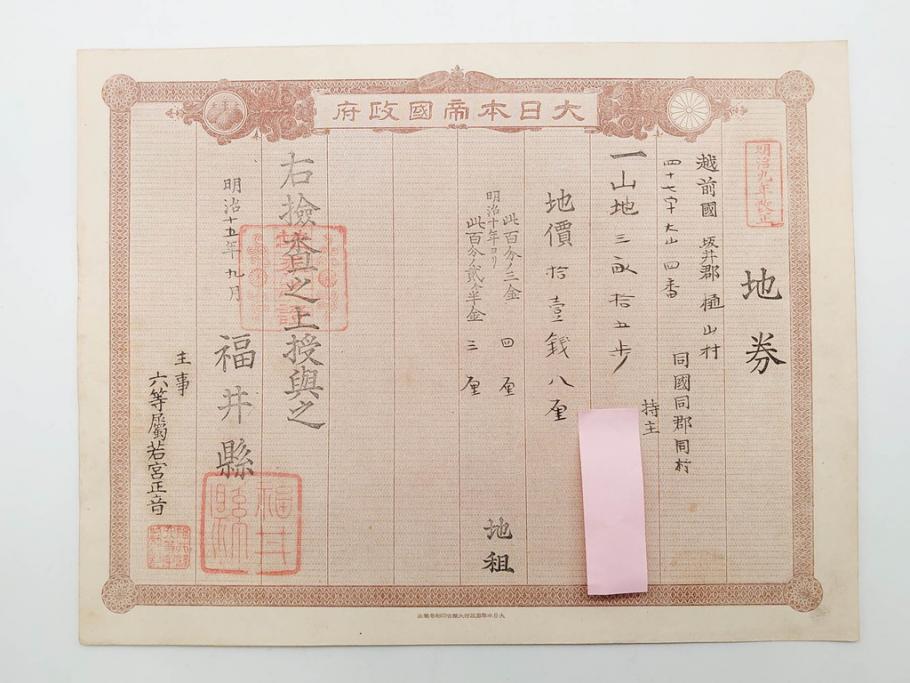 大日本帝國政府
明治九年改正
地券
越前國坂井郡樋山村
四十七字大山四番
同國同郡同村
持主
一山地三畝拾五歩
地價拾壹錢八厘
此百分ノ三金四厘
明治十年ヨリ
此百分ノ貳ヶ半金三厘
地租
右撿査之上授與之
明治十五年九月
福井縣
主事
六等屬若宮正音
福井縣印